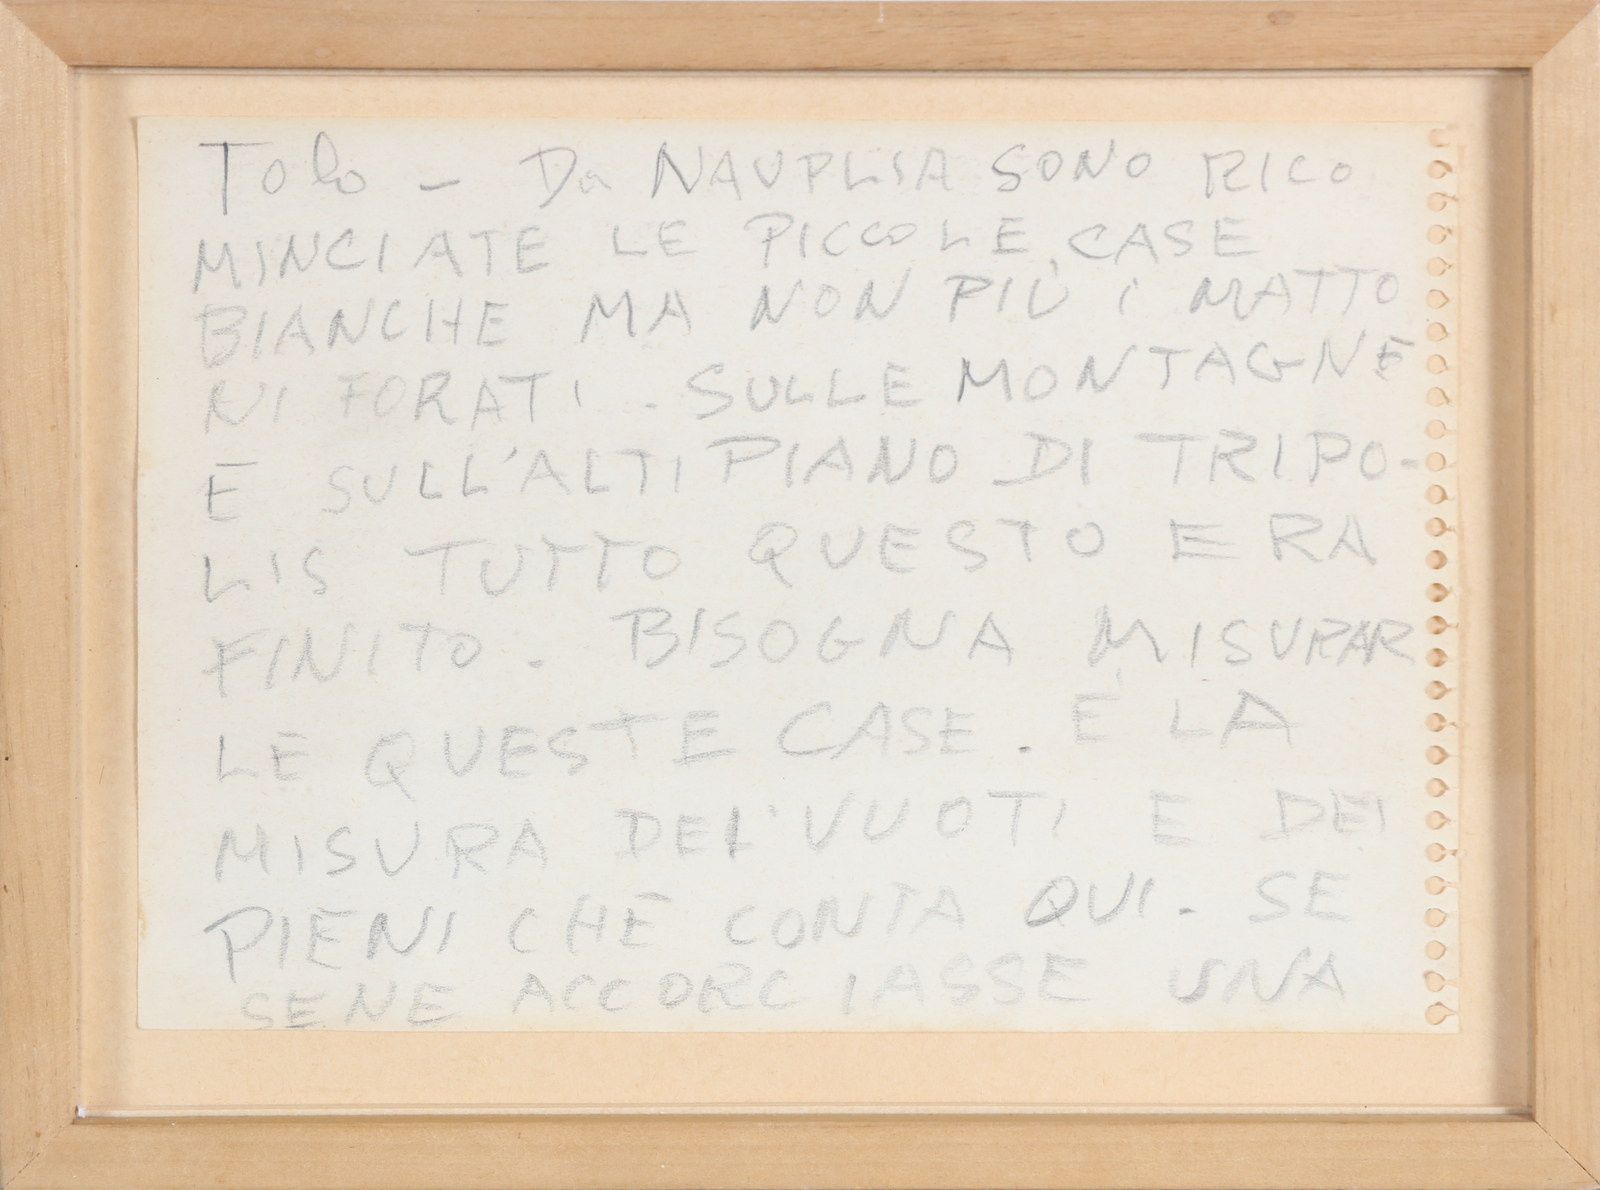 Tolo - Da NAUPLIA SONO RICO
MINCIATE LE PICCOLE CASE
BIANCHE MA NON PIÙ I MATTO
NI FORATI. SULLE MONTAGNE
E SULL'ALTIPIANO DI TRIPO-
LIS TUTTO QUESTO ERA
FINITO. BISOGNA MISURAR
LE QUESTE CASE. È LA
MISURA DEI VUOTI E DEI
PIENI CHE CONTA QUI. SE
SENE ACCORCIASSE UNA